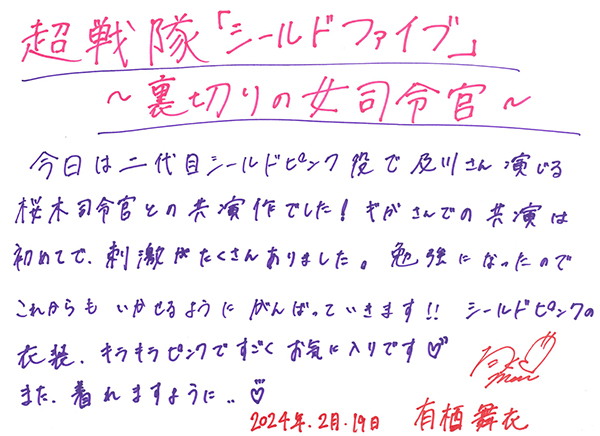 超戦隊「シールドファイブ」
～裏切りの女司令官～
今日は二代目シールドピンク役で及川さん演じる
桜木司令官との共演作でした！ギガさんでの共演は
初めてで、刺激がたくさんありました。勉強になったので
これからもいかせるようにがんばっていきます!! シールドピンクの
衣装、キラキラピンクですごくお気に入りです♡
また、着れますように..♡
2024年.2月.19日 有栖舞衣